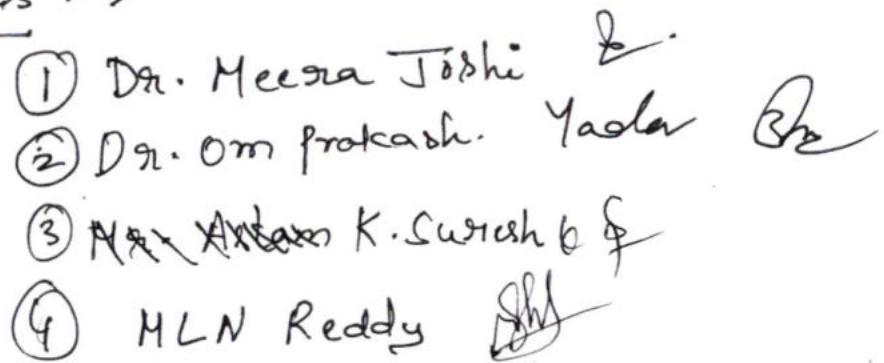 ① Dr. Meera Joshi
② Dr. Om Prakash. Yadav
③ K. Suresh
④ MLN Reddy